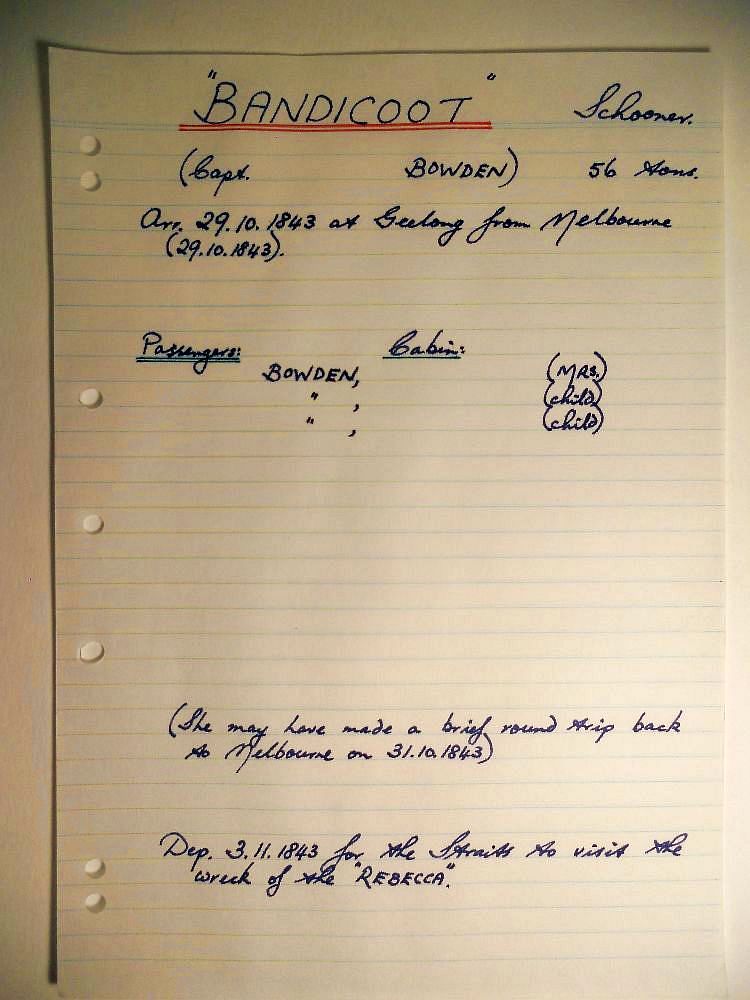 "BANDICOOT" Schooner.
(Capt. BOWDEN) 56 Tons.
Arr. 29.10.1843 at Geelong from Melbourne
(29.10.1843).
Passengers: Cabin:
BOWDEN, (MRS.)
" , (child)
" , (child)
(She may have made a brief round trip back
to Melbourne on 31.10.1843)
Dep. 3.11.1843 for the Straits to visit the
wreck of the "REBECCA".